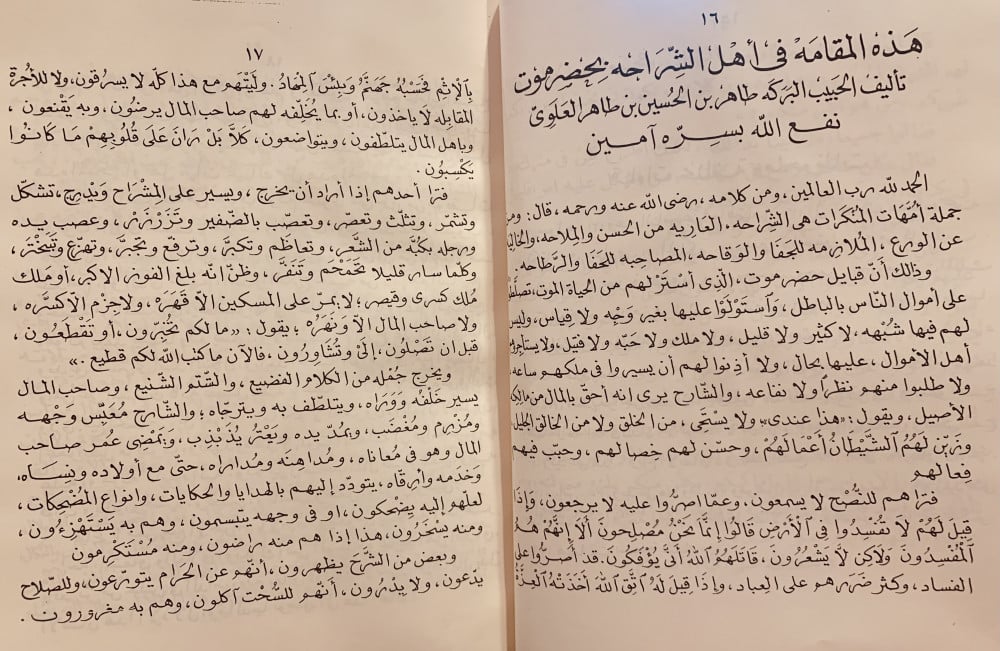 ١٦
هَذه المقامَه في أهل الشِّرَاحه بحَضرموت
تأليف الحَبيب البَركَه طاهر بن الحُسين بن طاهر العَلَوِي
نفع الله بسِرّه آمين
الحمد لله رب العالمين، ومن كلامه، رضي الله عنه ورحمه، قال: ومن
جملة أمَّهات المُنكرَات هي الشِّراحه، العَاريه من الحسن والملاحه، والخاليه
عن الورع، الملازمه للجَفَا والوَقاحه، المصاحبه للحَفَا والرَّطاحه.
وذلك أنّ قبايل حضرموت، الَّذي أسْتَرّ لهم من الحياة الموت، تصلَّطوا
على أموال النَّاس بالباطل، وَاستَولَوْا عليها بغير وَجْه ولا قياس، وليس
لهم فيها شُبْهه، لا كثير ولا قليل، ولا ملك ولا حَبّه ولا فتيل، ولا يستأجرهم
أهل الأموال، عليها بحال، ولا أذِنوا لهم أن يسيروا في ملكهم ساعه
ولا طلبوا منهم نظرًا ولا نفاعه، والشَّارح يرى انه أحقّ بالمال من مالكه
الأصيل، ويقول: «هذا عندي» ولا يستَحي، من الخلق ولا من الخالق الجليل
وَزَيَّن لَهُمُ ٱلشَّيْطَانُ أَعْمَالَهُمْ، وحسّن لهم خِصالهم، وحبّب فيهم
فِعالهم
فترَاهم للنُّصْح لا يسمعون، وعمّا اصرُّوا عليه لا يرجعون، وَإذَا
قِيلَ لَهُمْ لَا تُفْسِدُوا فِي ٱلأَرْضِ قَالُوا إِنَّمَا نَحْنُ مُصْلِحونَ أَلَا إِنَّهُمْ هُمُ
ٱلْمُفْسِدُونَ وَلَاكِن لَّا يَشْعُرُونَ، قَاتَلَهُمُ ٱللهُ أَنَّى يُؤْفَكُونَ. قد أصَرُّوا على
الفساد، وكثر ضرَرهم على العباد، وإِذَا قِيلَ لَهُ ٱتَّقِ ٱللهَ أَخَذَتْهُ ٱلْعِزَّةُ
١٧
بِٱلْإِثْمِ فَحَسْبُهُ جَهَنَّمُ وَبِئْسَ ٱلمِهَادُ. ولَيْتَهم مع هذا كلّه لا يسرُقون، ولا للأجْرة
المقابله لا ياخذون، أو بما يُخلِّفه لهم صاحب المال يرضَون، وبه يَقْنعون،
وبأهل المال يتلَطّفون، ويتواضعون، كَلَّا بَلْ رَانَ عَلَى قُلُوبِهِمْ مَا كَانُوا
يَكْسِبُون.
فترَا أحدهم إذا أراد أن يخرج، ويسير على المِشْرَاح وَيَدرِج، تشكّل
وتشمّر، وتثلّث وتعصّر، وتعصّب بالضّفير وتَزَرْنَزْر، وعصب يده
ورجله بكُبَّه من الشَّعر، وتعاظم وتكبَّر، وترفّع وتجبَّر، وتهرَّع وتَبَخْتَر،
وكلّما سار قليلا تحَمْحَم وتَنَفَّر، وظنّ انه بلغ الفوز الاكبر، أو مَلك
مُلك كسرى وقيصر؛ لا يمرّ على المسكين الاّ قهَرَه، ولا حِزْم الاّ كسَّره،
ولا صاحب المال الاّ ونَهَرَه؛ يقول: «ما لكم تخبِّرون، أو تقْطَعُون،
قبل ان تَصْلُون، إليَّ وتُشَاوِرُون، فالآن ما كتبَ الله لكم قطيع.»
ويخرج جُفْله من الكلام الفضيع، والشّتم الشّنيع، وصاحب المال
يسير خَلْفَه وَوَرَاه، ويتلطّف به ويترجّاه؛ والشّارح مُعَبِّس وَجْهه
ومُزْرِم ومُغْضَب، ويمُدّ يده ويَعْتُر يُذَبْذِب، ويَمضي عُمر صاحب
المال وهو في مُعاناه، ومُداهنَه ومُداراه، حتّى مع أولاده ونِسَاه،
وخَدَمه وأرِقَّاه، يتودّد إليهم بالهدايا والحكايات، وانواع المُضْحكات،
لعلّهم إليه يضْحكون، او في وجهه يتبسمون، وهم به يَسْتَهْزِءُون،
ومنه يسْخَرُون، هذا إذا هم منه راضون، ومنه مُسْتَكْرمون
وبعض من الشَّرَح يظهرون، أنّهم عن الحَرام يتورّعون، وللصّلاح
يدّعون، ولا يدْرُون، أنّهم للسُّحْت آكلون، وهم به مغرورون.